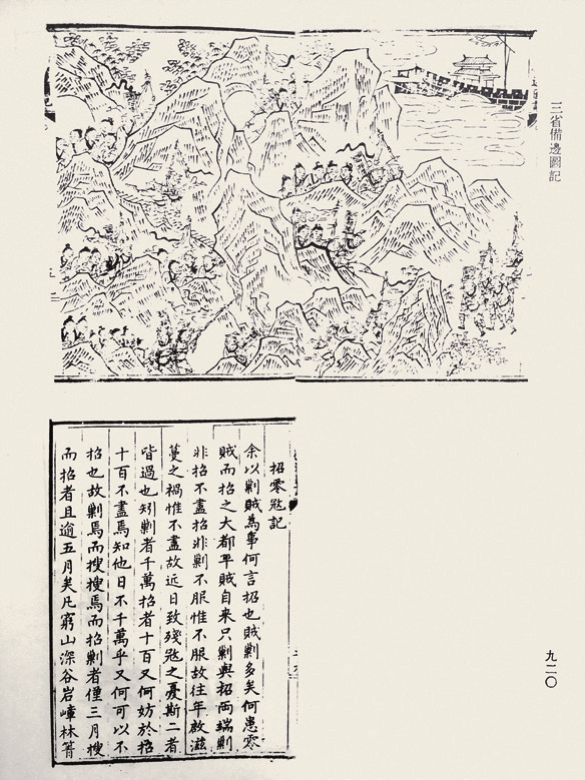 三省備邊圖記
招零㓂記
余以剿賊為事何言招也賊剿多矣何患零
賊而招之大都平賊自来只剿與招兩端剿
非招不盡招非剿不服惟不服故往年啟滋
蔓之禍惟不盡故近日致殘㓂之憂斯二者
皆過也矧剿者千萬招者十百又何妨於招
十百不盡焉知他日不千萬乎又何可以不
招也故剿焉而搜搜焉而招剿者僅三月搜
而招者且逾五月矣凡窮山深谷岩嶂林箐
九二〇